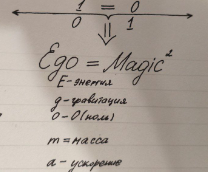 1 = 0
0 1
Ego = Magic²
E - энегия
g - гравитация
0 - 0 (ноль)
m = масса
a - ускорение